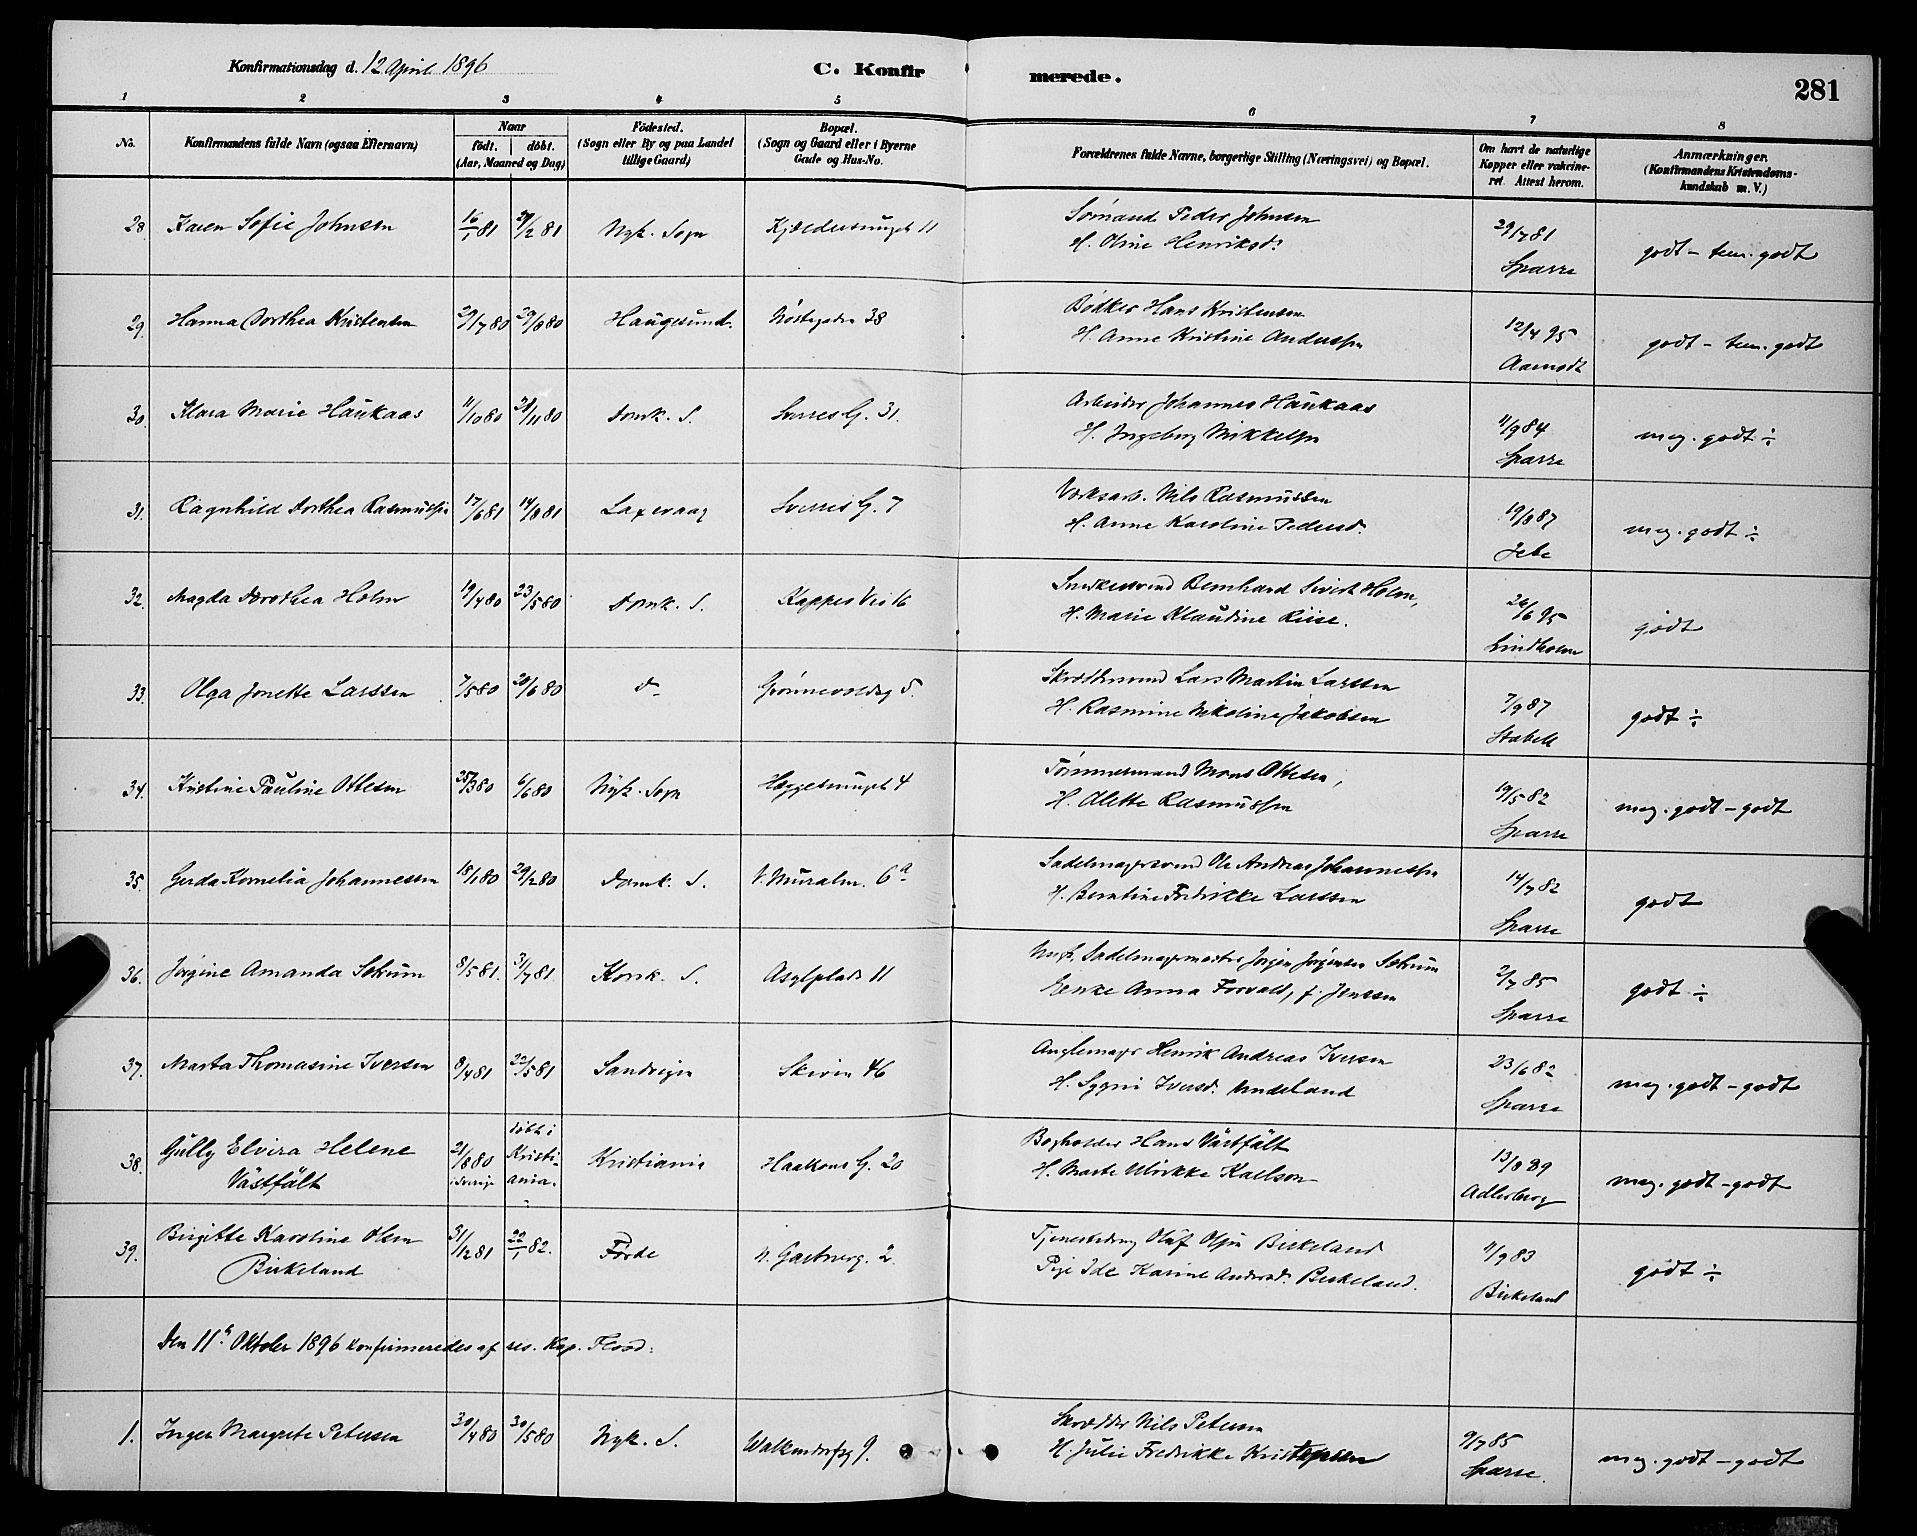 Konfirmationsdag d. 12 April 1896 C. Konfirmerede. 281
1 2 3 4 5 6 7 8
No. Konfirmandens fulde Navn (ogsaa Efternavn) Naar födt. döbt. (Aar, Maaned og Dag) Födested. (Sogn eller By og paa Landet tillige Gaard) Bopæl. (Sogn og Gaard eller i Byerne Gade og Hus-No. Forældrenes fulde Navne, borgerlige Stilling (Næringsvei) og Bopæl. Om havt de naturlige Kopper eller vakcineret. Attest herom. Anmærkninger. (Konfirmandens Kristendomskundskab m. V.)
28. Karen Sofie Johnsen 16/1 81 /2 81 Nyk. Sogn 11 Sömand Peder Johnsen 29/7 81 godt - tem. godt
H. Oline Henriksd. Sparre
29. Hanna Dorthea Kristensen 29/7 80 29/8 80 Haugesund. Nöstegaden 38 Bödker Hans Kristensen 12/4 95 godt - tem. godt
H. Anne Kristine Anderssen Aamodt
30. Klara Marie Haukaas 11/10 80 28/11 80 Domk. S. Sverres G. 31. Arbeider Johannes Haukaas 11/9 84 meg. godt ÷
H. Ingeborg Mikkelsen Sparre
31. Ragnhild Dorthea Rasmussen 17/6 81 14/8 81 Laxevaag Sverres G. 7 Værksarb. Nils Rasmussen 19/8 87 meg. godt ÷
H. Anne Karoline Pedersd. Jebe
32. Magda Dorothea Holm 19/4 80 23/5 80 Domk. S. Kappes Vei 16 Snedkersvend Bernhard Sivert Holm, 26/6 95 godt
H. Marie Klaudine Riise. Lindholm
33. Olga Jonette Larssen 7/5 80 20/6 80 d- Grönnevoldsg 5. Skræddersvend Lars Martin Larssen 7/9 87 godt ÷
H. Rasmine Nikoline Jakobsen Stabell
34. Kristine Pauline Ottesen 25/3 80 6/6 80 Nyk. Sogn Heggesmuget 4 Tömmermand Mons Ottesen, 19/5 82 meg. godt - godt
H. Olette Rasmussen Sparre
35. Gerda Kornelia Johannessen 18/1 80 29/2 80 Domk. S. V. Muralm. 6a Sadelmagersvend Ole Andreas Johannessen 14/7 82 godt
H. Berntine Fredrikke Larssen Sparre
36. Jörgine Amanda Sætrum 8/5 81. 31/7 81. Korsk. S. Asylplads 11 Sadelmagermester Jörgen Jörgensen Sætrum 2/7 85 godt ÷
Enke Anna f. Jenssen Sparre
37. Marta Thomasine Iversen 8/4 81 22/5 81 Sandvigen Skiven 46 Henrik Andreas Iversen 23/6 82 meg. godt - godt
H. Iversd. Sparre
38. Gully Elvira Helene 21/8 80 döbt i Kristiania. Kristiania Haakons G. 20 Bogholder Hans Västfält 13/8 89 meg. godt - godt
Västfält i Sverige H. Marte Ulrikke Karlson Adlerberg
39. Birgitte Karoline Olsen 31/12 81 22/1 82. Förde 2. Tjenestedreng Olaf Olsen Birkeland 11/9 83 godt ÷
Birkeland Pige Ide Karine Andersd. Birkeland. Birkeland
Den 11te Oktober 1896 konfirmeredes af res. Kap. Flood:
1. Inger Margrete Petersen 30/4 80 30/5 80 Nyk. S. Walkendorfsg 9. Skrædder Nils Petersen 9/7 85 meg. godt - godt
H. Julie Fredrikke Kristophersen Sparre.